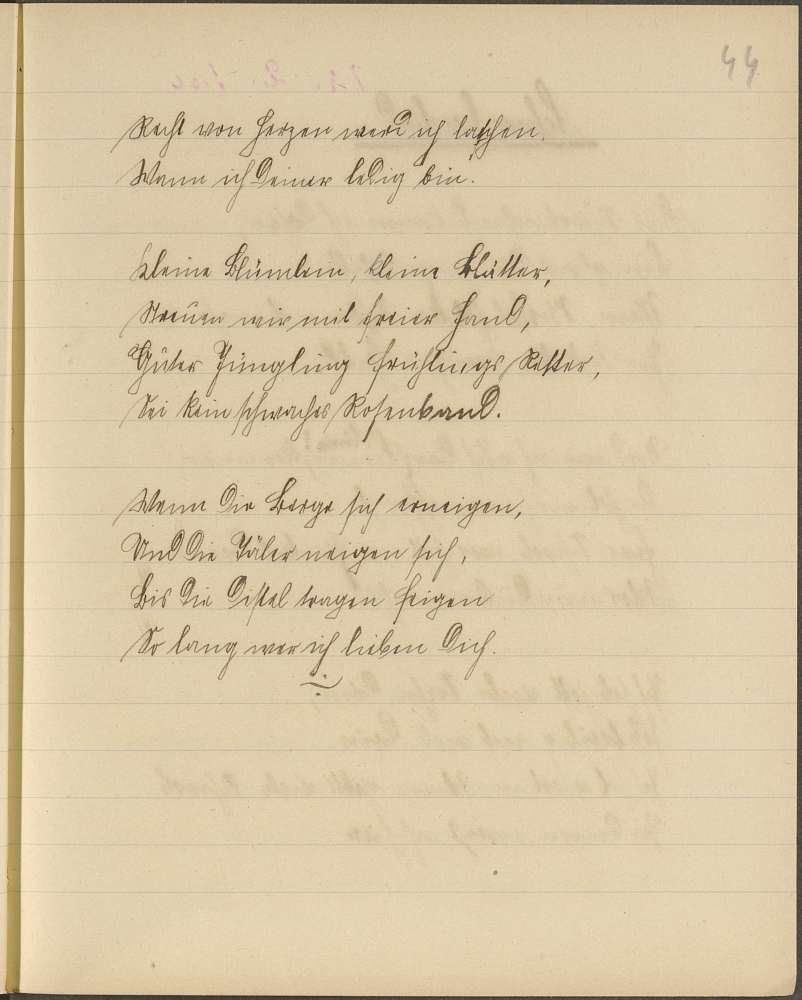 44
Recht von Herzen werd ich lachen.
Wenn ich Deiner ledig bin.
Kleine Blümlein, kleine Blätter,
Streuen wir mit freier Hand,
Guter Jüngling Frühlings Retter,
Sei kein schwaches Rosenband.
Wenn die Berge sich erneigen,
Und die Täler neigen sich,
Bis die Distel tragen Feigen
So lang wer ich lieben Dich.